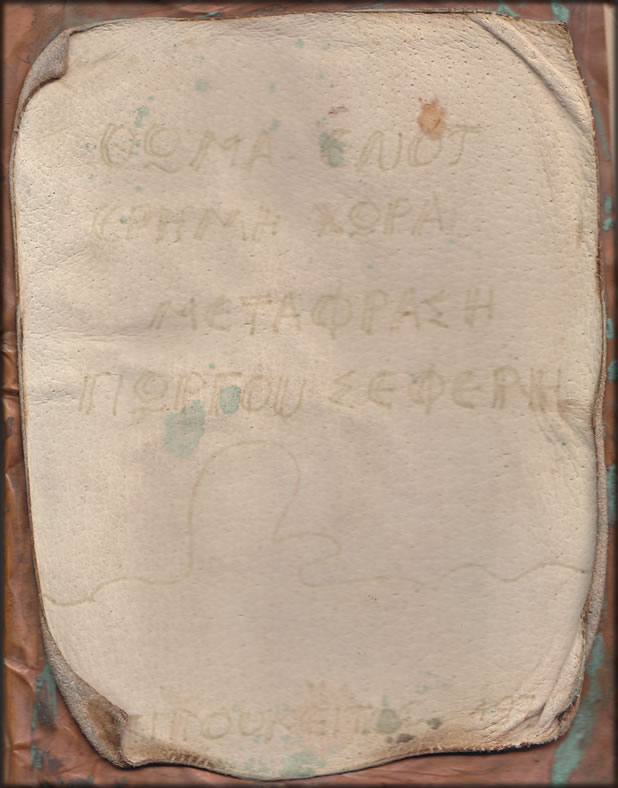 ΘΩΜΑ ΕΛΙΟΤ
ΕΡΗΜΗ ΧΩΡΑ
ΜΕΤΑΦΡΑΣΗ
ΓΙΩΡΓΟΥ ΣΕΦΕΡΗ